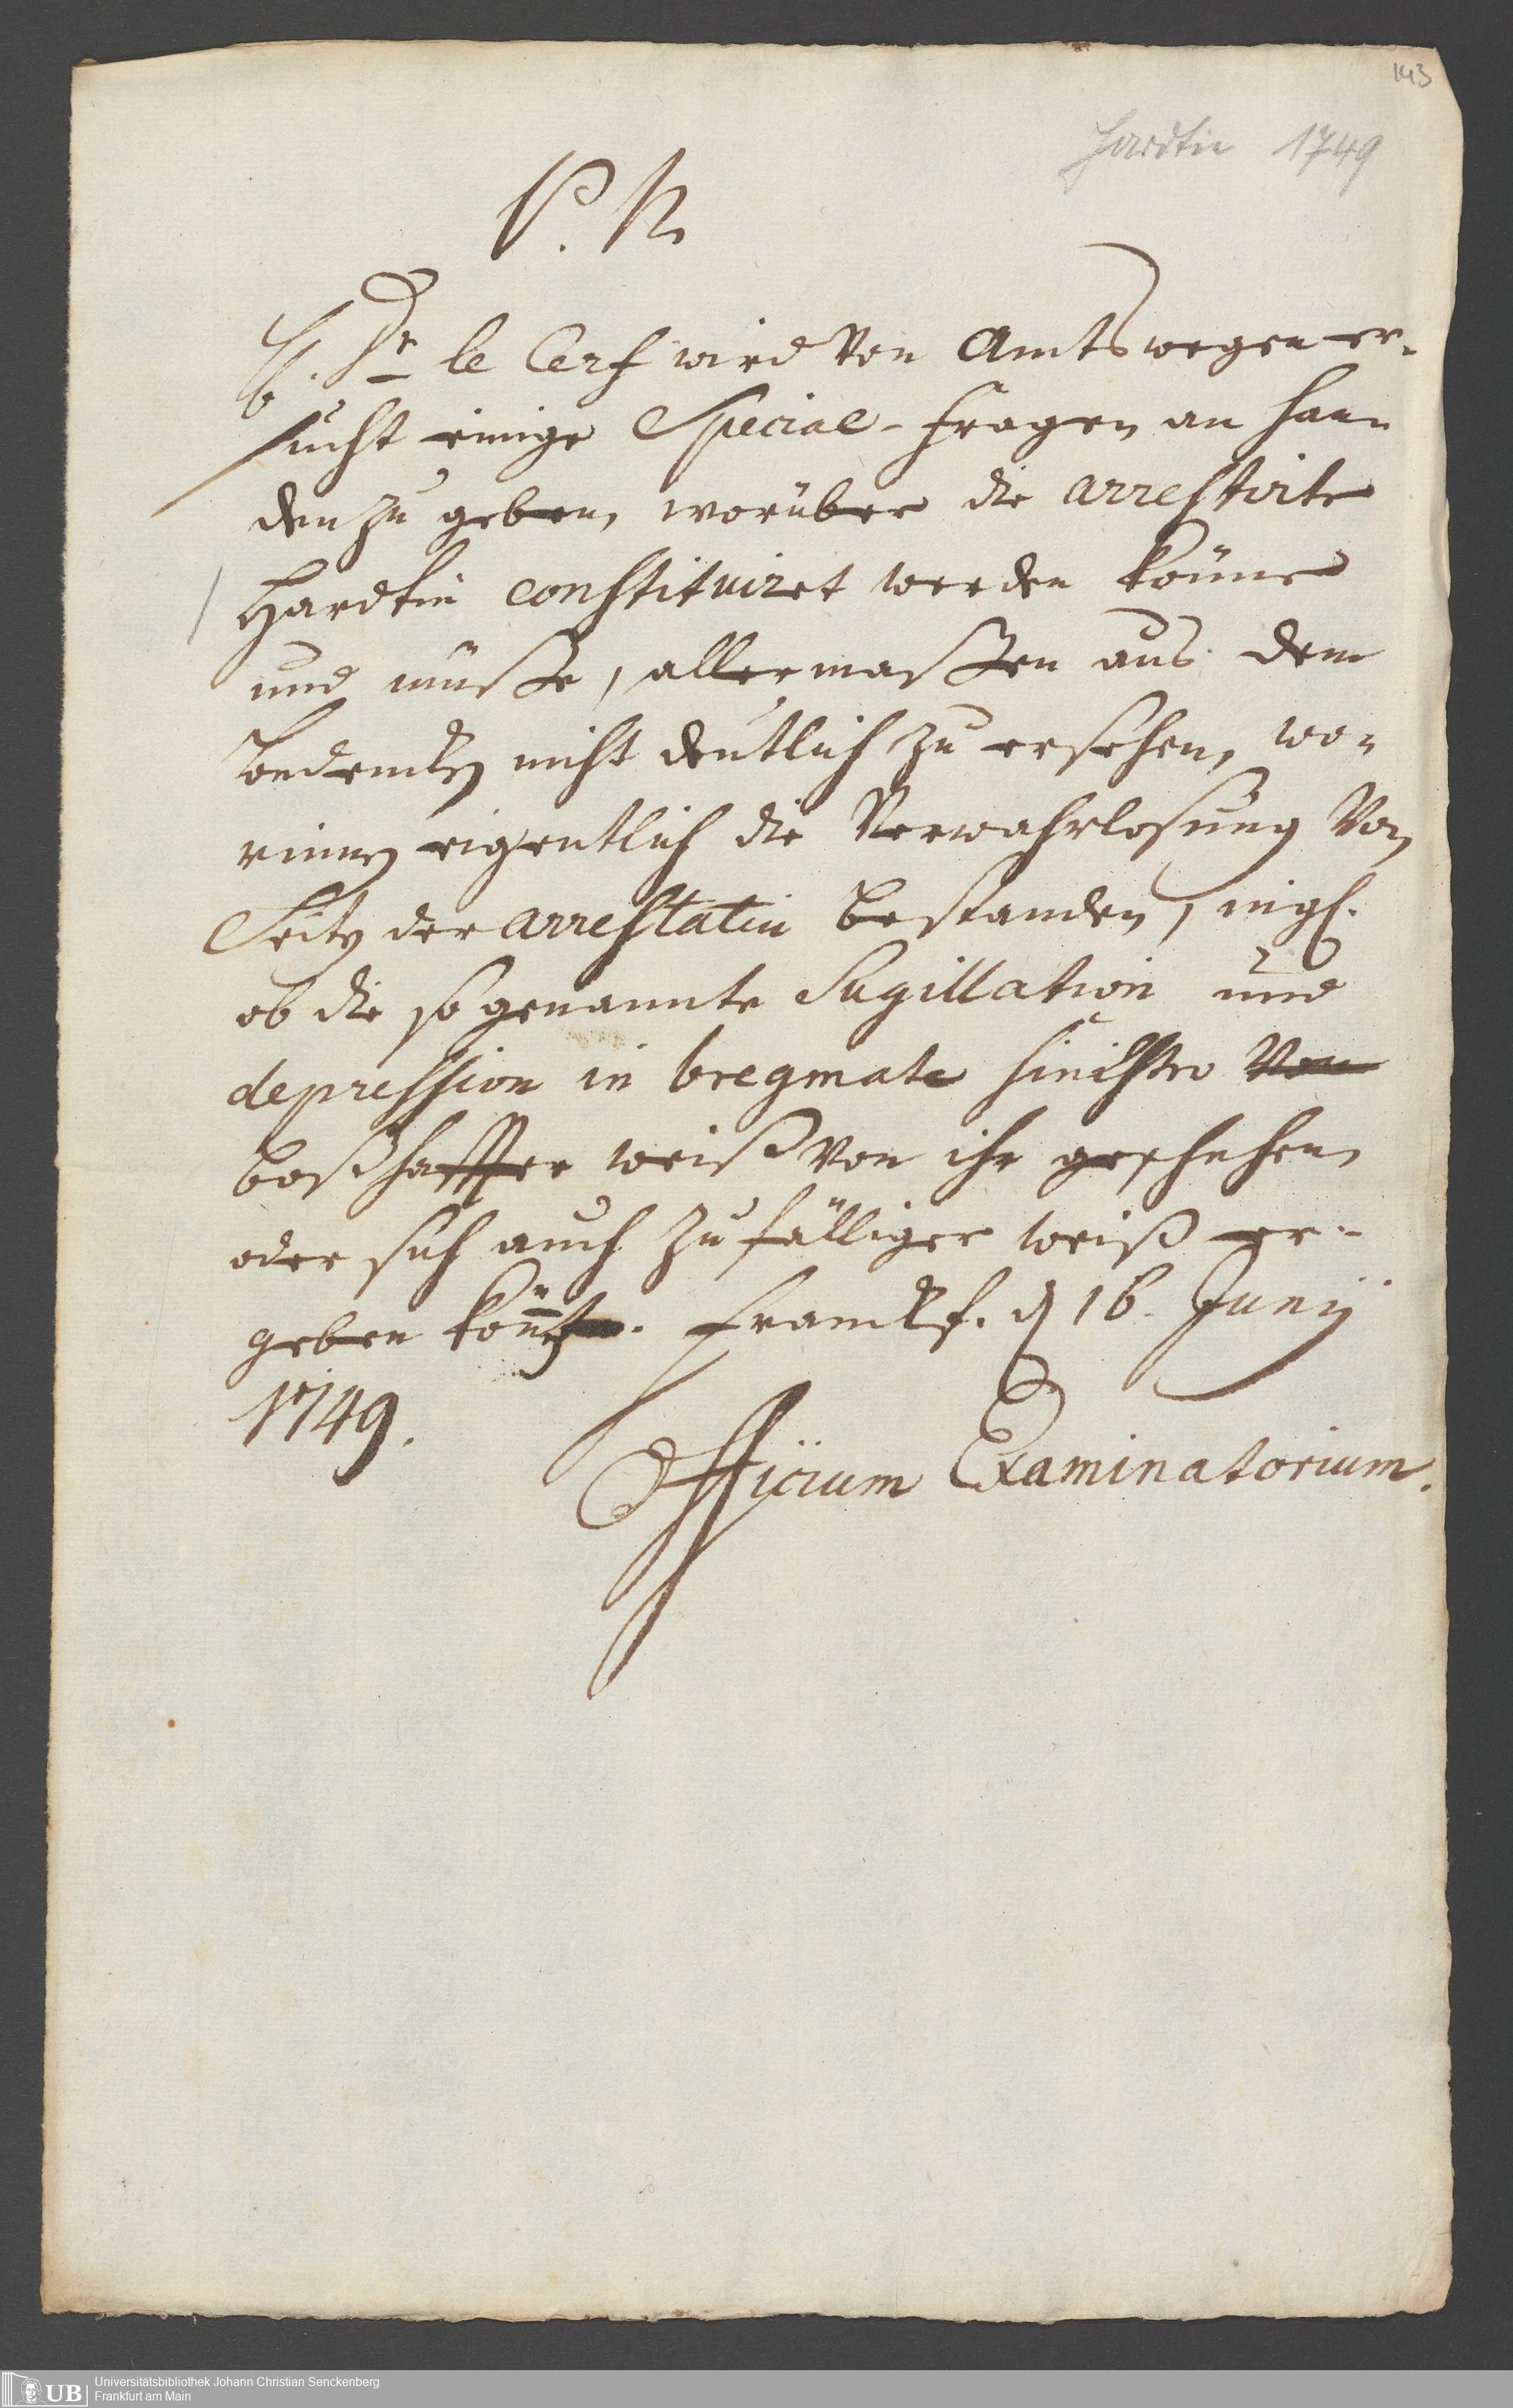 143
Hardtin 1749
P. N.
H. Dr le Cerf wird von Amtswegen er-
sucht einige Special-fragen an han-
den zu geben, worüber die arrestirte
Hardtin constituiret werden könne
und müsse, allermaßen aus dem
Bedencken nicht deutlich zu ersehen, wo-
rinnen eigentlich die Verwahrlosung Von
Seiten der arrestatin bestanden, ingl.
ob die so genannte Sugillation und
depression in bregmate sinistro Von
boßhaffter weiß von ihr geschehen,
oder sich auch zufälliger weiß er-
geben könte. Franckf. d 16. Junij
1749.
Officium Examinatorium.
UB Universitätsbibliothek Johann Christian Senckenberg
Frankfurt am Main